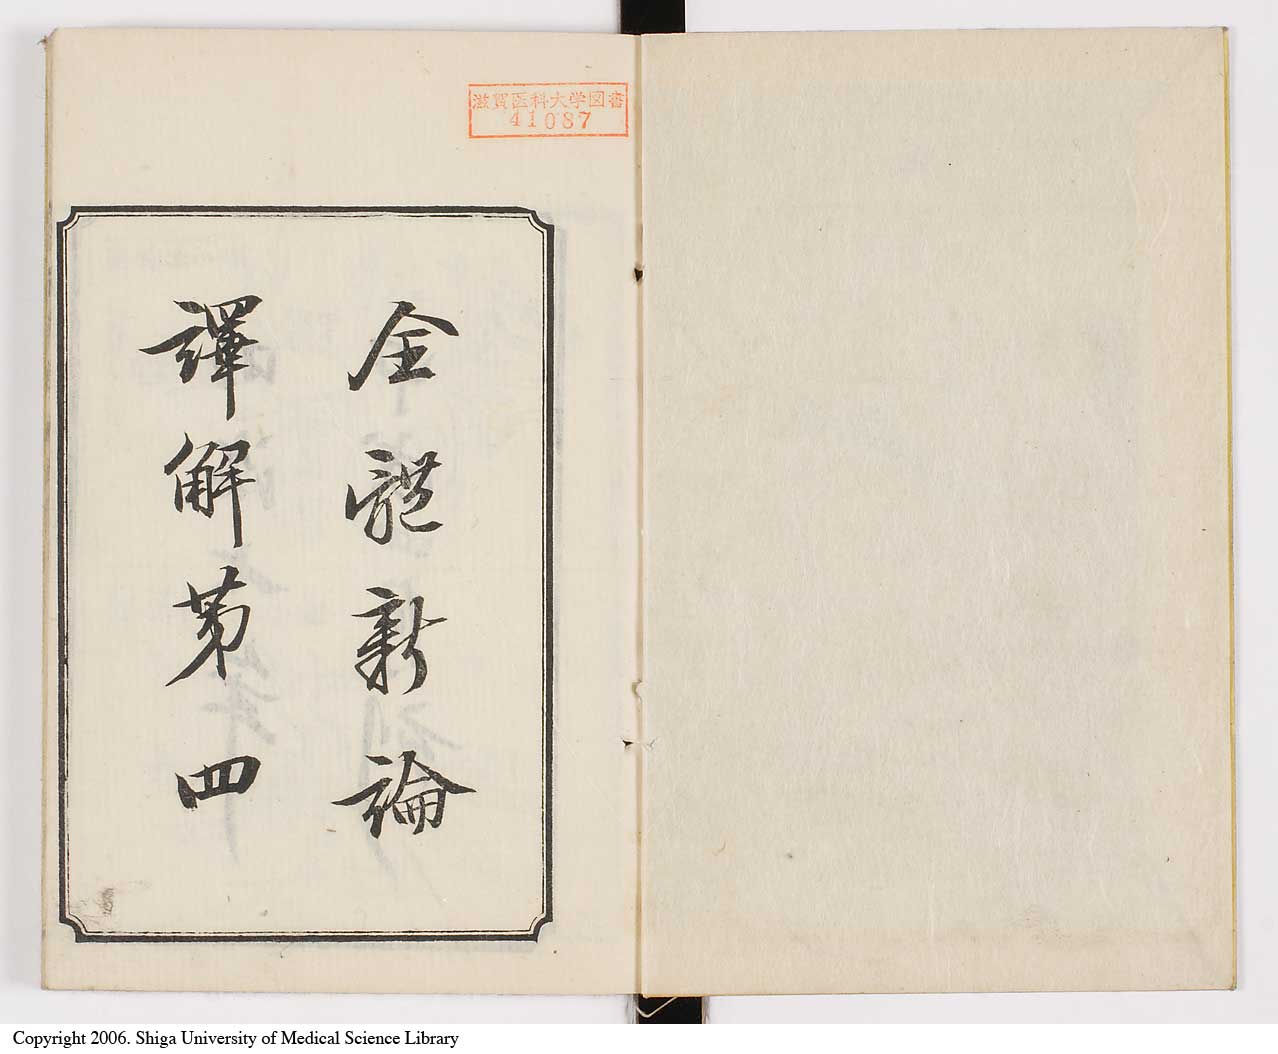 滋賀医科大学図書
41087
全體新論
譯解第四
Copyright 2006. Shiga University of Medical Science Library